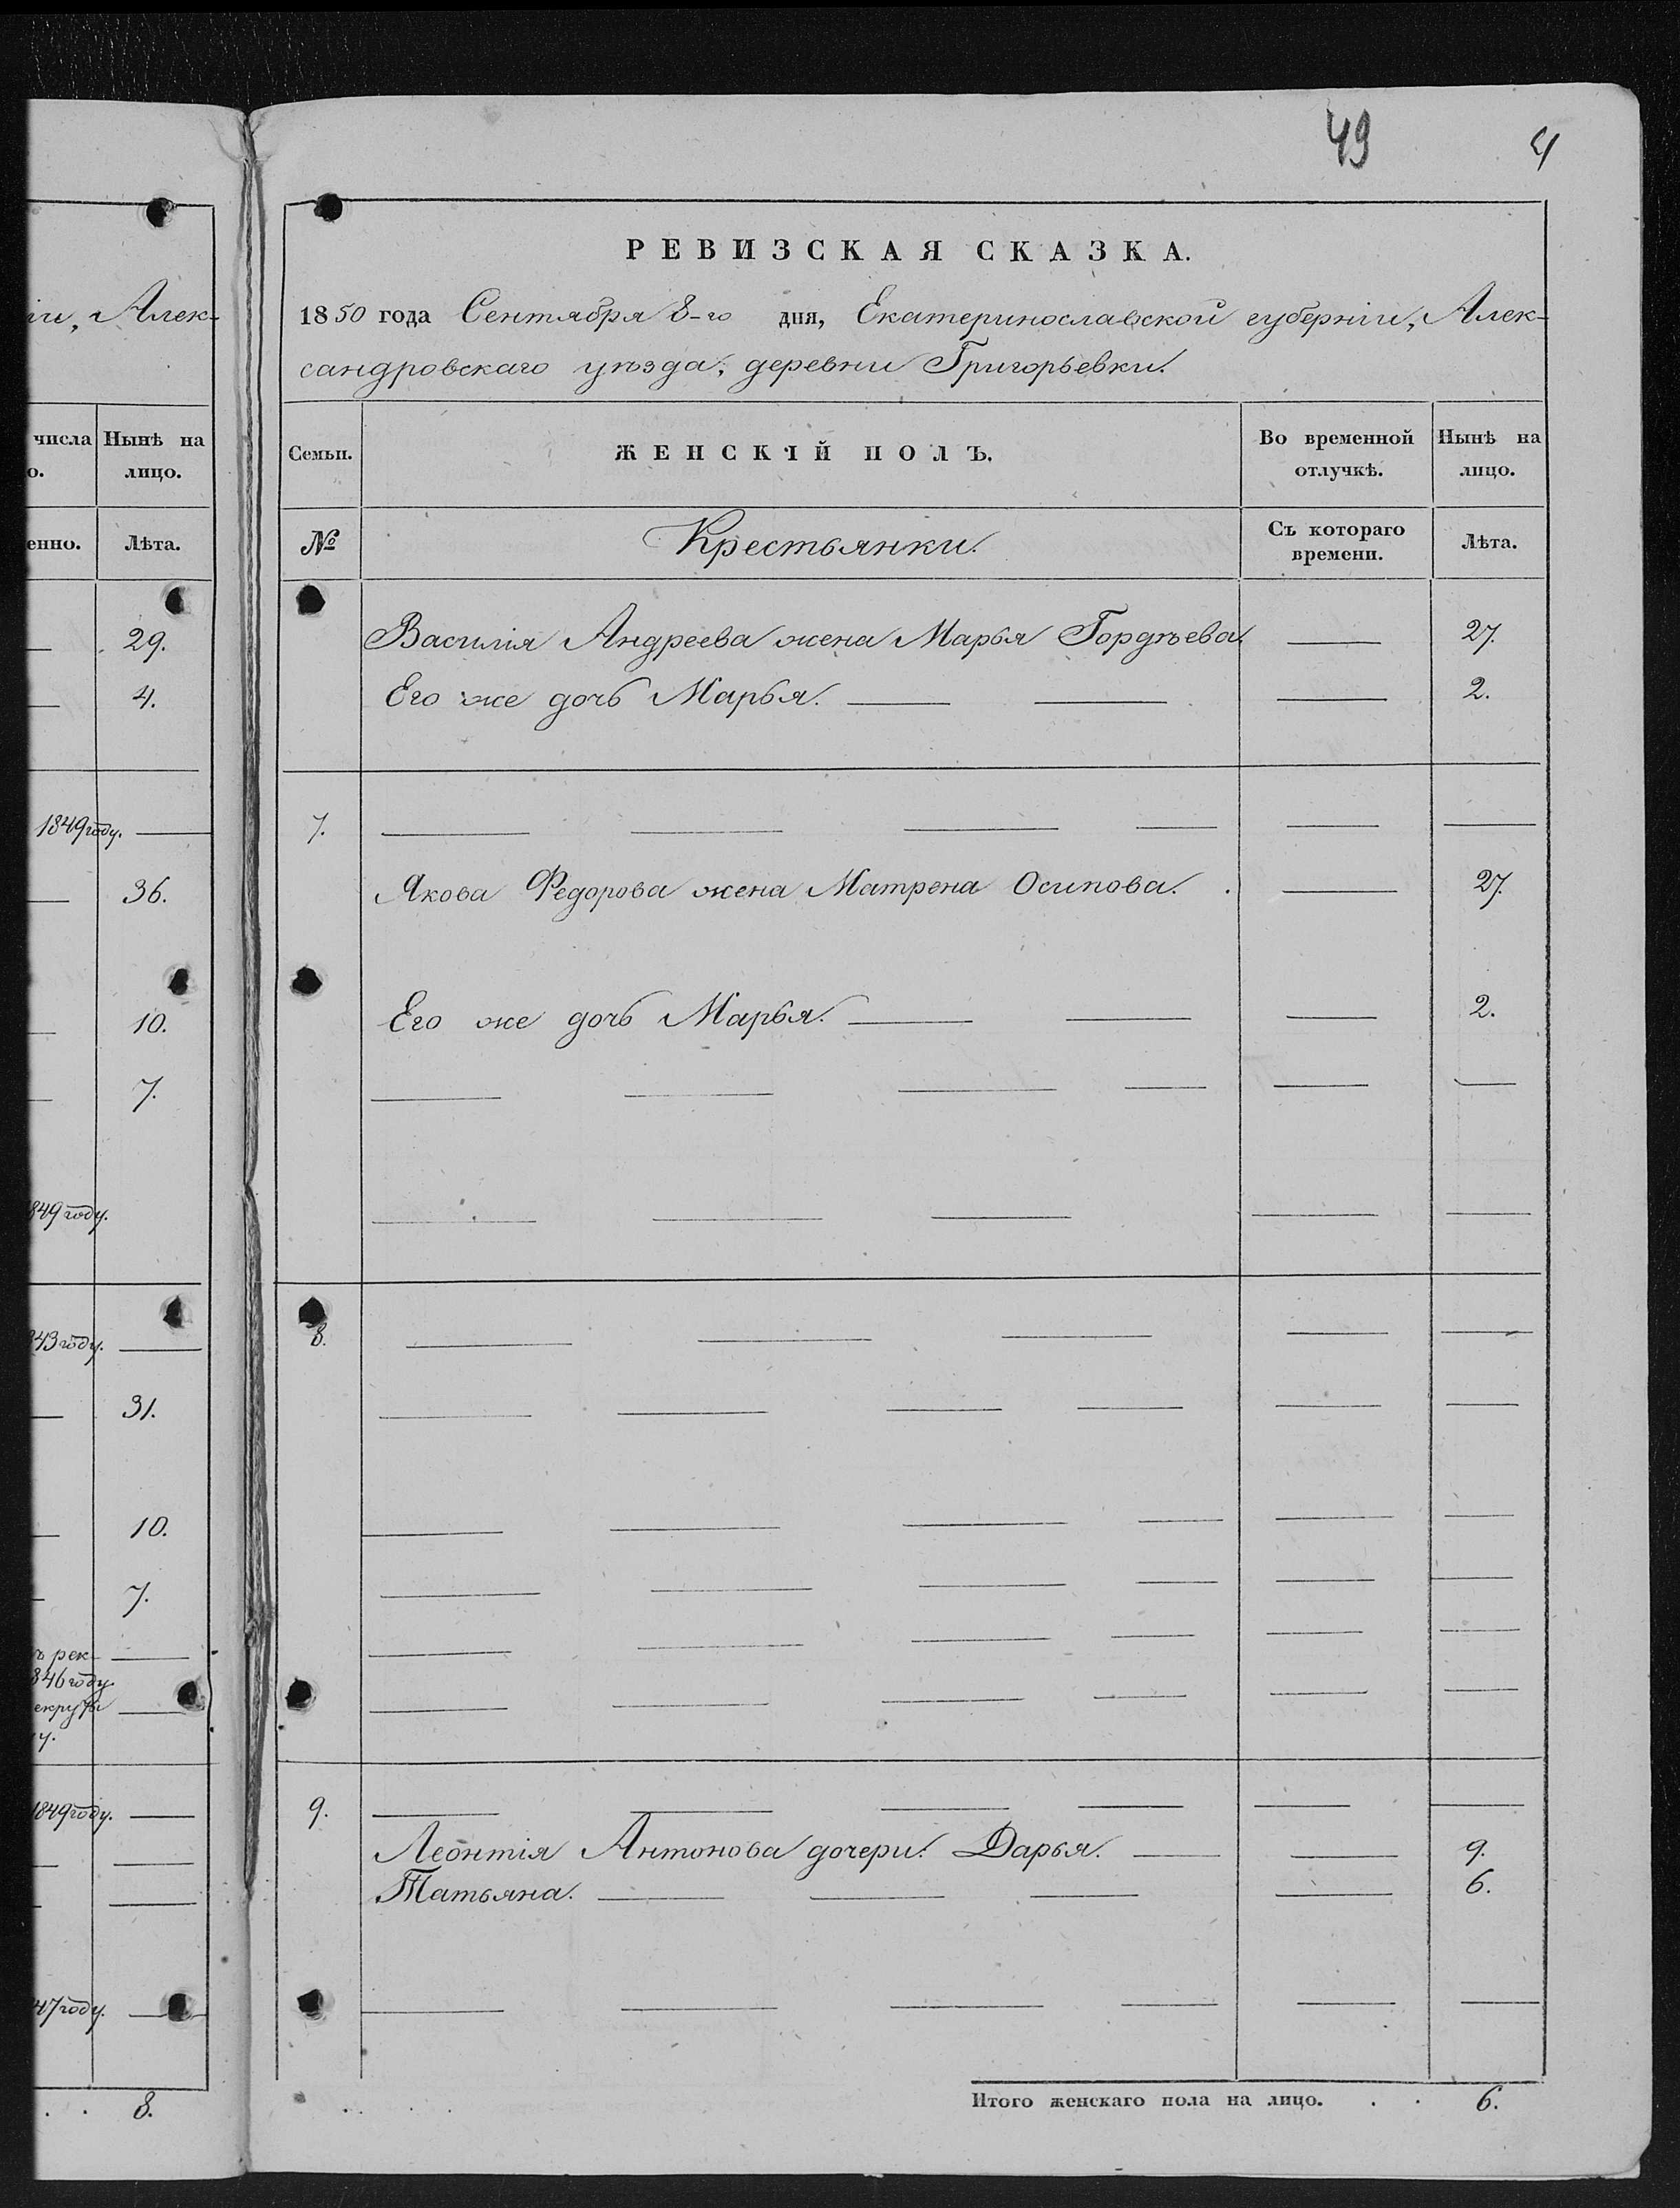 49 4
іи, Алек-
числа Нынѣ на
о. лицо.
енно. Лѣта.
29.
4.
1849 году.
36.
10.
7.
849 году.
843 году.
31.
10.
7.
ъ рек-
846 году.
екруты
у.
1849 году.
47 году.
8.
РЕВИЗСКАЯ СКАЗКА.
1850 года Сентября 8-го дня, Екатеринославской губерніи, Алек-
сандровскаго уѣзда, деревни Григорьевки.
Семьи. ЖЕНСКІЙ ПОЛЪ. Во временной отлучкѣ. Нынѣ на лицо.
№ Крестьянки. Съ котораго времени. Лѣта.
Василія Андреева жена Марья Гордѣева. 27.
Его же дочь Марья. 2.
7.
Якова Федорова жена Матрена Осипова. 27.
Его же дочь Марья. 2.
8.
9.
Леонтія Антонова дочери: Дарья. 9.
Татьяна. 6.
Итого женскаго пола на лицо. . . 6.